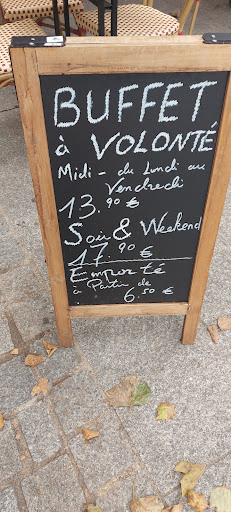 BUFFET
à VOLONTÉ
Midi - du Lundi au
Vendredi
13.90 €
Soir & Weekend
17.90 €
Emporté
à Partir de
6.50 €